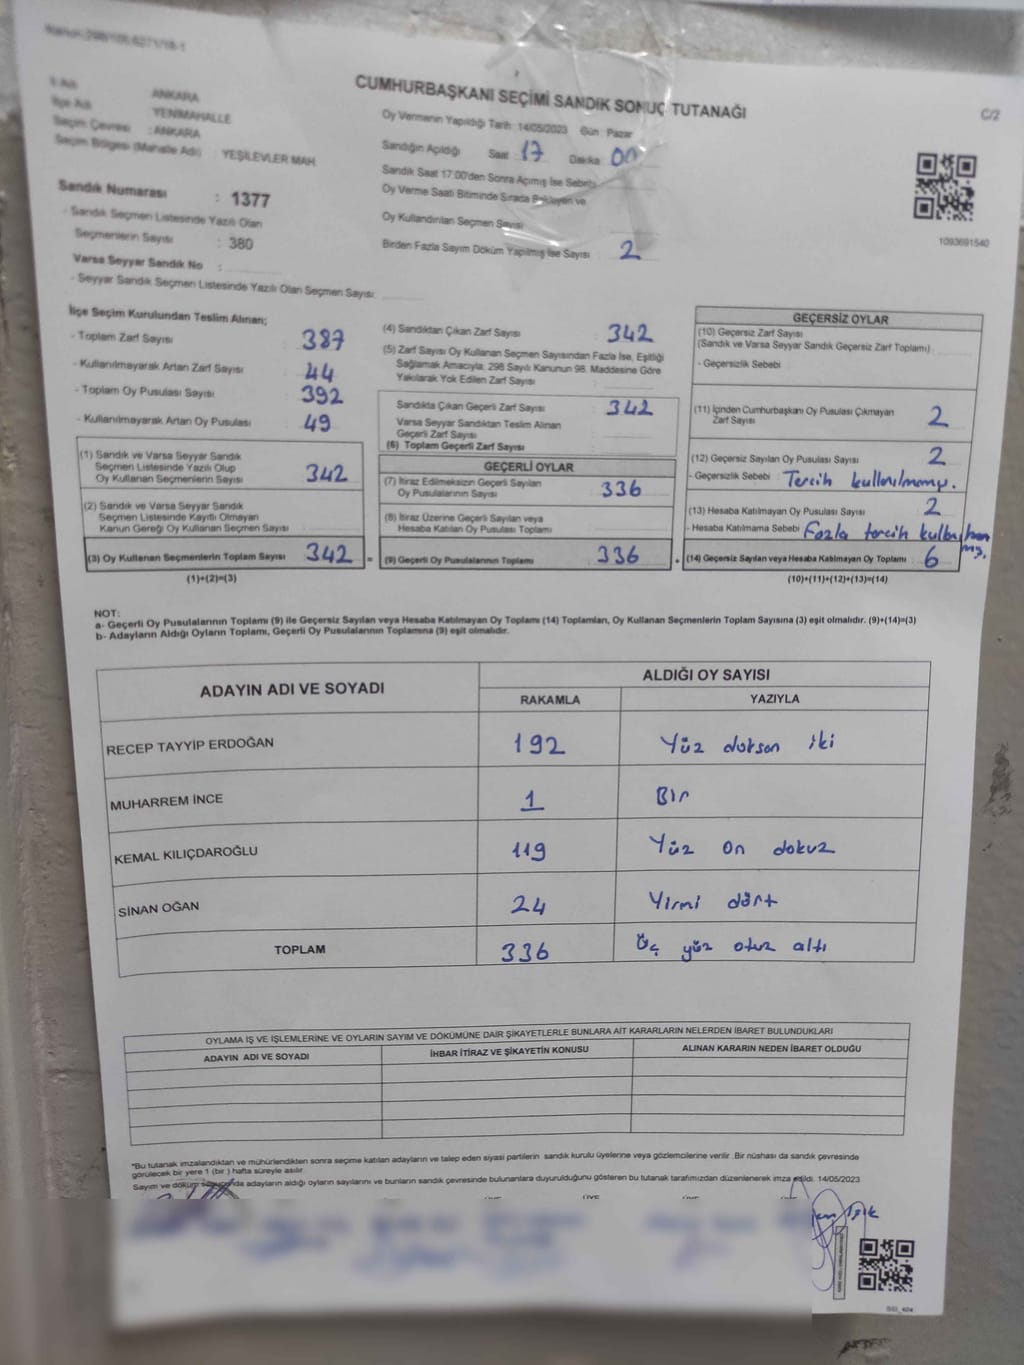 Kanun:298/105,6271/18-1
CUMHURBAŞKANI SEÇİMİ SANDIK SONUÇ TUTANAĞI
C/2
İl Adı : ANKARA
İlçe Adı : YENİMAHALLE
Seçim Çevresi : ANKARA
Seçim Bölgesi (Mahalle Adı) : YEŞİLEVLER MAH.
Sandık Numarası : 1377
- Sandık Seçmen Listesinde Yazılı Olan
Seçmenlerin Sayısı : 380
Varsa Seyyar Sandık No :
- Seyyar Sandık Seçmen Listesinde Yazılı Olan Seçmen Sayısı:
Oy Vermenin Yapıldığı Tarih :14/05/2023 Gün : Pazar
Sandığın Açıldığı Saat : 17 Dakika : 00
Sandık Saat 17:00'den Sonra Açımış İse Sebebi
Oy Verme Saati Bitiminde Sırada Bekleyen ve
Oy Kullandırılan Seçmen Sayısı
Birden Fazla Sayım Döküm Yapılmış İse Sayısı : 2
1093691540
İlçe Seçim Kurulundan Teslim Alınan;
- Toplam Zarf Sayısı : 387
- Kullanılmayarak Artan Zarf Sayısı : 44
- Toplam Oy Pusulası Sayısı : 392
- Kullanılmayarak Artan Oy Pusulası : 49
(1) Sandık ve Varsa Seyyar Sandık
Seçmen Listesinde Yazılı Olup
Oy Kullanan Seçmenlerin Sayısı : 342
(2) Sandık ve Varsa Seyyar Sandık
Seçmen Listesinde Kayıtlı Olmayan
Kanun Gereği Oy Kullanan Seçmen Sayısı :
(3) Oy Kullanan Seçmenlerin Toplam Sayısı : 342 =
(1)+(2)=(3)
(4) Sandıktan Çıkan Zarf Sayısı : 342
(5) Zarf Sayısı Oy Kullanan Seçmen Sayısından Fazla İse, Eşitliği
Sağlamak Amacıyla, 298 Sayılı Kanunun 98. Maddesine Göre
Yakılarak Yok Edilen Zarf Sayısı :
Sandıkta Çıkan Geçerli Zarf Sayısı : 342
Varsa Seyyar Sandıktan Teslim Alınan
Geçerli Zarf Sayısı :
(6) Toplam Geçerli Zarf Sayısı :
GEÇERLİ OYLAR
(7) İtiraz Edilmeksizin Geçerli Sayılan
Oy Pusulalarının Sayısı : 336
(8) İtiraz Üzerine Geçerli Sayılan veya
Hesaba Katılan Oy Pusulası Toplamı :
(9) Geçerli Oy Pusulalarının Toplamı : 336 +
GEÇERSİZ OYLAR
(10) Geçersiz Zarf Sayısı
(Sandık ve Varsa Seyyar Sandık Geçersiz Zarf Toplamı) :
- Geçersizlik Sebebi :
(11) İçinden Cumhurbaşkanı Oy Pusulası Çıkmayan
Zarf Sayısı : 2
(12) Geçersiz Sayılan Oy Pusulası Sayısı : 2
- Geçersizlik Sebebi : Tercih kullanılmamış.
(13) Hesaba Katılmayan Oy Pusulası Sayısı : 2
- Hesaba Katılmama Sebebi : Fazla tercih
(14) Geçersiz Sayılan veya Hesaba Katılmayan Oy Toplamı : 6
(10)+(11)+(12)+(13)=(14)
NOT:
a- Geçerli Oy Pusulalarının Toplamı (9) ile Geçersiz Sayılan veya Hesaba Katılmayan Oy Toplamı (14) Toplamları, Oy Kullanan Seçmenlerin Toplam Sayısına (3) eşit olmalıdır. (9)+(14)=(3)
b- Adayların Aldığı Oyların Toplamı, Geçerli Oy Pusulalarının Toplamına (9) eşit olmalıdır.
ADAYIN ADI VE SOYADI
ALDIĞI OY SAYISI
RAKAMLA YAZIYLA
RECEP TAYYİP ERDOĞAN 192 Yüz doksan iki
MUHARREM İNCE 1 Bir
KEMAL KILIÇDAROĞLU 119 Yüz on dokuz
SİNAN OĞAN 24 Yirmi dört
TOPLAM 336 Üç yüz otuz altı
OYLAMA İŞ VE İŞLEMLERİNE VE OYLARIN SAYIM VE DÖKÜMÜNE DAİR ŞİKAYETLERLE BUNLARA AİT KARARLARIN NELERDEN İBARET BULUNDUKLARI
ADAYIN ADI VE SOYADI İHBAR İTİRAZ VE ŞİKAYETİN KONUSU ALINAN KARARIN NEDEN İBARET OLDUĞU
*Bu tutanak imzalandıktan ve mühürlendikten sonra seçime katılan adayların ve talep eden siyasi partilerin sandık kurulu üyelerine veya gözlemcilerine verilir .Bir nüshası da sandık çevresinde
görülecek bir yere 1 (bir ) hafta süreyle asılır.
Sayım ve döküm adayların aldığı oyların sayılarını ve bunların sandık çevresinde bulunanlara duyurulduğunu gösteren bu tutanak tarafımızdan düzenlenerek imza edildi. 14/05/2023
ÜYE ÜYE ÜYE
Işık